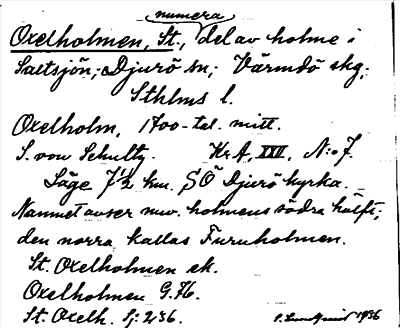 numera
Oxelholmen, St., del av holme i
Saltsjön; Djurö sn; Värmdö skg;
Sthlms l.
Oxelholm, 1700-tal. mitt.
S. von Schultz. Kr A, XXII, N:o 7.
Läge 7 1/2 km. SÖ Djurö kyrka.
Namnet avser nuv. holmens södra hälft;
den norra kallas Furuholmen.
St. Oxelholmen ek.
Oxelholmen G.K.
St. Oxelh. Sj: 236.
S. Lundqvist 1936